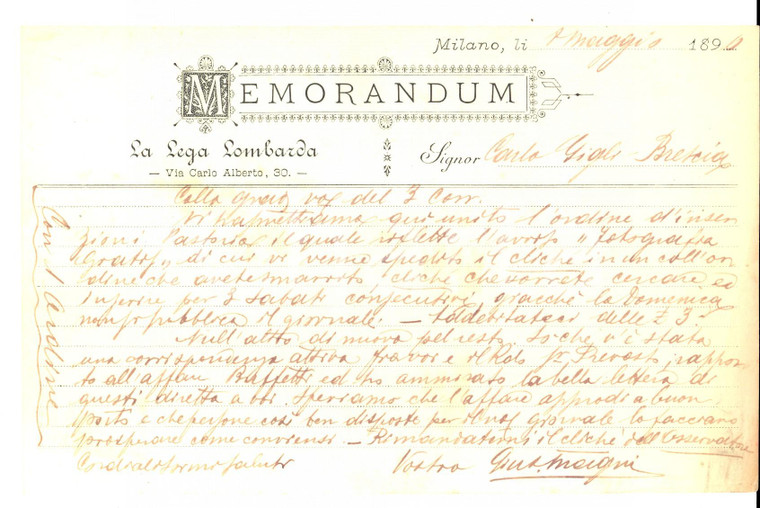 Milano, li Maggio 189
MEMORANDUM
La Lega Lombarda
— Via Carlo Alberto, 30. —
Signor Carlo Brescia
Con 1 ordine
del 3 Corr.
Vi trasmettiamo qui unito l'ordine d'inser
zioni il quale riflette l'avviso „ fotografia
gratis „ di cui vi venne spedito il cliché in un coll'or
dine che avete smarrito cliché che vorrete cercare ed
inserire per 3 sabati consecutivi, giacchè la Domenica
non si pubblica il giornale. — delle £ 3.
Null'altro di nuovo pel resto. So che v'è stata
una corrispondenza attiva fra voi e il Prevosto, rappor
to all'affare Baffetti, ed ho ammirato la bella lettera di
questi diretta a voi. Speriamo che l'affare approdi a buon
porto e che persone così ben disposte per il giornale lo facciano
prosperare come conviensi. — Rimandatemi il cliché dell'Osservatore
Cordialissimi saluti
Vostro